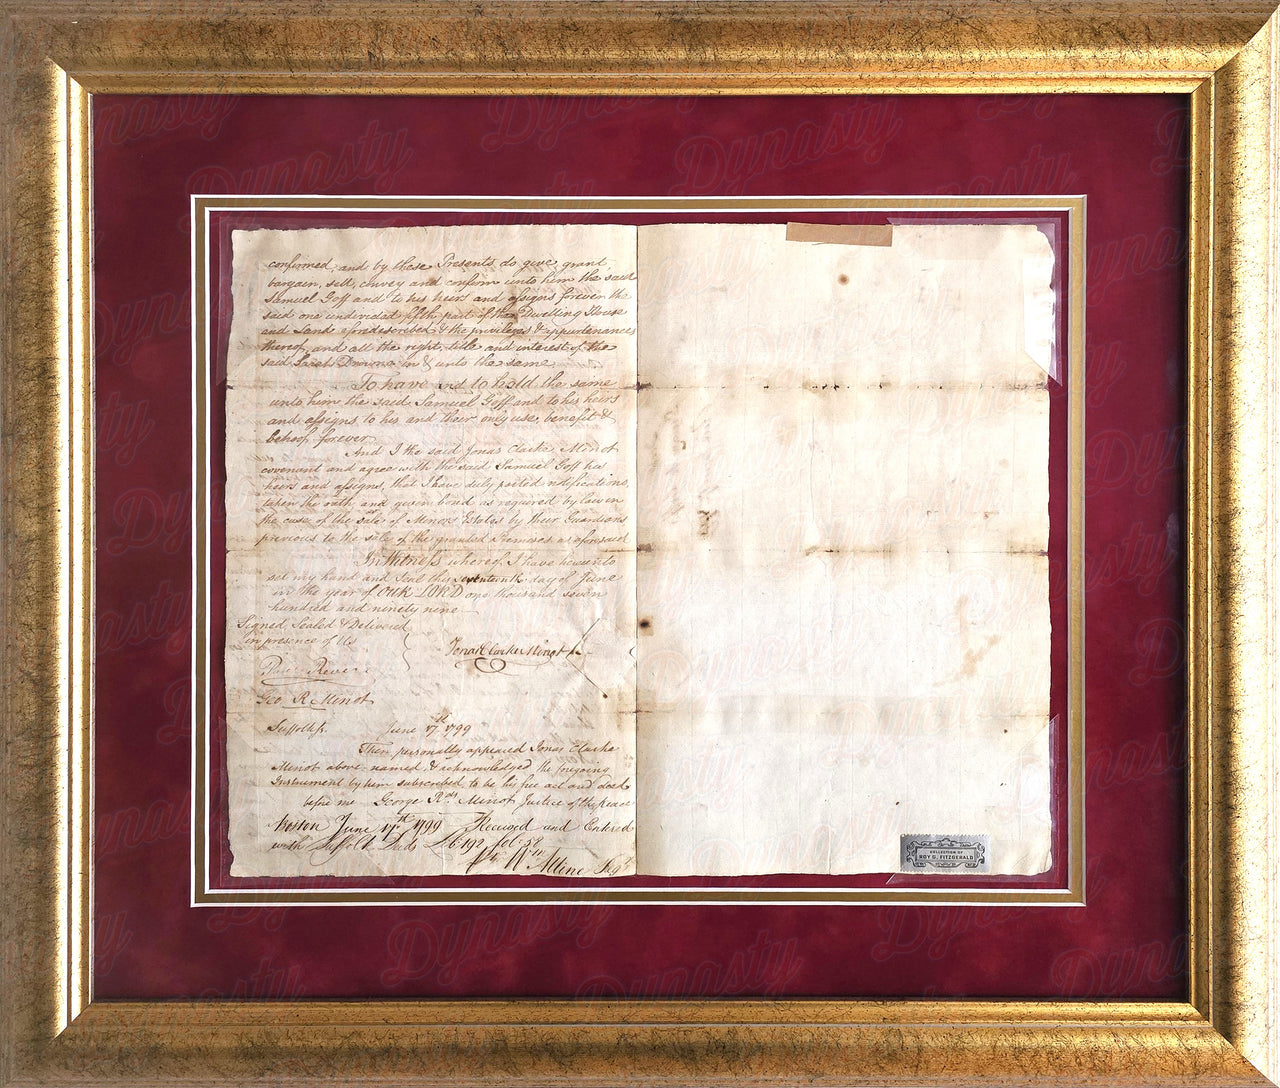 confirmed, and by these Presents do give, grant
bargain, sell, convey and confirm unto him the said
Samuel Goff and to his heirs and assigns forever the
said one undivided fifth part of the Dwelling House
and Lands aforedescribed & the privileges & appurtenances
thereof, and all the right, title and interest of the
said Sarah in & unto the same
To have and to hold the same
unto him, the said Samuel Goff and to his heirs
and assigns to his and their only use, benefit &
behoof forever
And I the said Jonas Clarke Minot
covenant and agree with the said Samuel Goff his
heirs and assigns, that I have duly posted notifications,
taken the oath and given bond as required by law in
the case of the sale of Minors Estates by their Guardians
previous to the sale of the granted Premises as aforesaid
In Witness whereof, I have hereunto
set my hand and Seal this seventeenth day of June
in the year of OUR LORD one thousand seven
hundred and ninety nine
Signed Sealed & Delivered
in presence of Us
Jonas Clarke Minot
Paul Revere
Geo. R. Minot
Suffolk ss. June 17th 1799
Then personally appeared Jonas Clarke
Minot above-named & acknowledged the foregoing
Instrument by him subscribed to be his free act and deed
before me George Rds Minot Justice of the peace
Boston June 17th 1799 Received and Entered
with Suffolk Deeds Lib 192 fol. 52
Wm Alline Regr
COLLECTION OF
ROY G. FITZGERALD
Dynasty